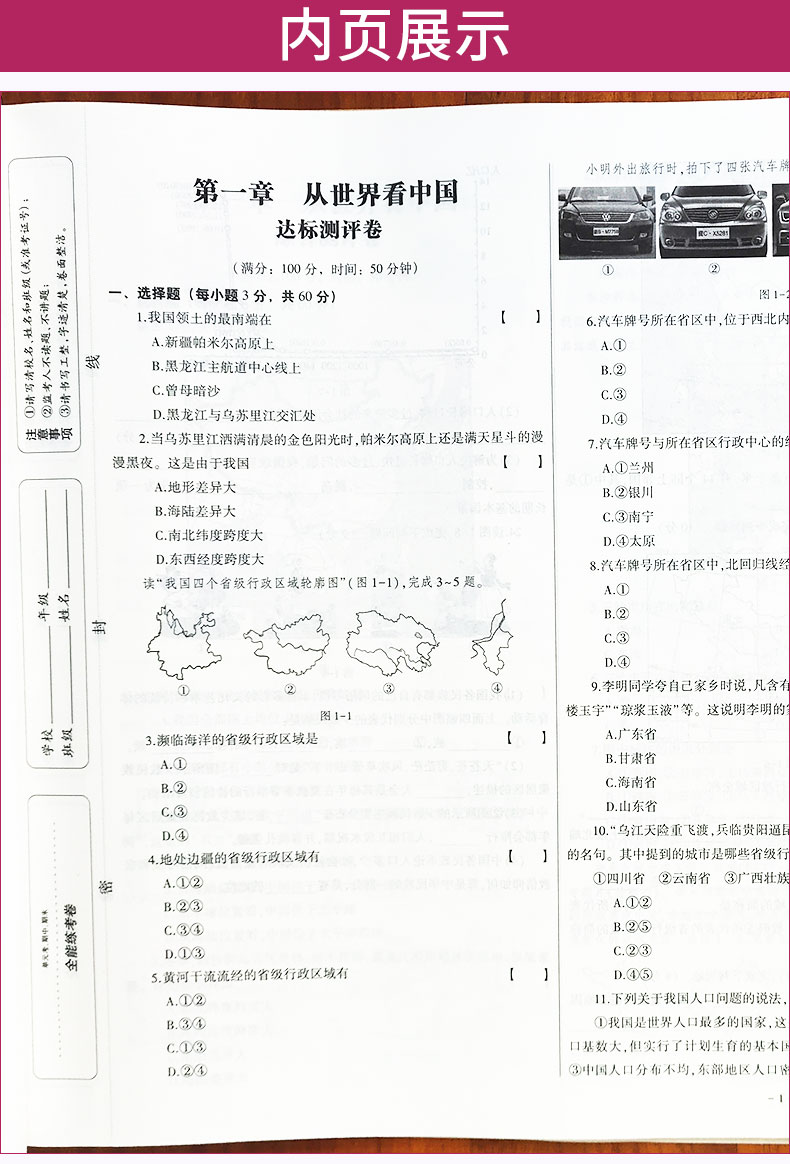 内页展示
注意事项
①请写清校名、姓名和班级(或准考证号);
②监考人不读题、不讲题;
③请书写工整,字迹清楚,卷面整洁。
学校 年级
班级 姓名
单元考、期中、期末
全能练考卷
线
封
密
第一章 从世界看中国
达标测评卷
(满分:100分,时间:50分钟)
一、选择题(每小题3分,共60分)
1.我国领土的最南端在 【 】
A.新疆帕米尔高原上
B.黑龙江主航道中心线上
C.曾母暗沙
D.黑龙江与乌苏里江交汇处
2.当乌苏里江洒满清晨的金色阳光时,帕米尔高原上还是满天星斗的漫
漫黑夜。这是由于我国 【 】
A.地形差异大
B.海陆差异大
C.南北纬度跨度大
D.东西经度跨度大
读“我国四个省级行政区域轮廓图”(图1-1),完成3~5题。
① ② ③ ④
图1-1
3.濒临海洋的省级行政区域是 【 】
A.①
B.②
C.③
D.④
4.地处边疆的省级行政区域有 【 】
A.①②
B.②③
C.③④
D.①③
5.黄河干流流经的省级行政区域有 【 】
A.①②
B.③④
C.①③
D.②④
小明外出旅行时,拍下了四张汽车牌
① ②
图1-2
6.汽车牌号所在省区中,位于西北内
A.①
B.②
C.③
D.④
7.汽车牌号与所在省区行政中心的
A.①兰州
B.②银川
C.③南宁
D.④太原
8.汽车牌号所在省区中,北回归线经
A.①
B.②
C.③
D.④
9.李明同学夸自己家乡时说,凡含有
楼玉宇”“琼浆玉液”等。这说明李明的
A.广东省
B.甘肃省
C.海南省
D.山东省
10.“乌江天险重飞渡,兵临贵阳逼昆
的名句。其中提到的城市是哪些省级行
①四川省 ②云南省 ③广西壮族
A.①②
B.②⑤
C.②③
D.④⑤
11.下列关于我国人口问题的说法,
①我国是世界人口最多的国家,这
口基数大,但实行了计划生育的基本国
③中国人口分布不均,东部地区人口密
- 1